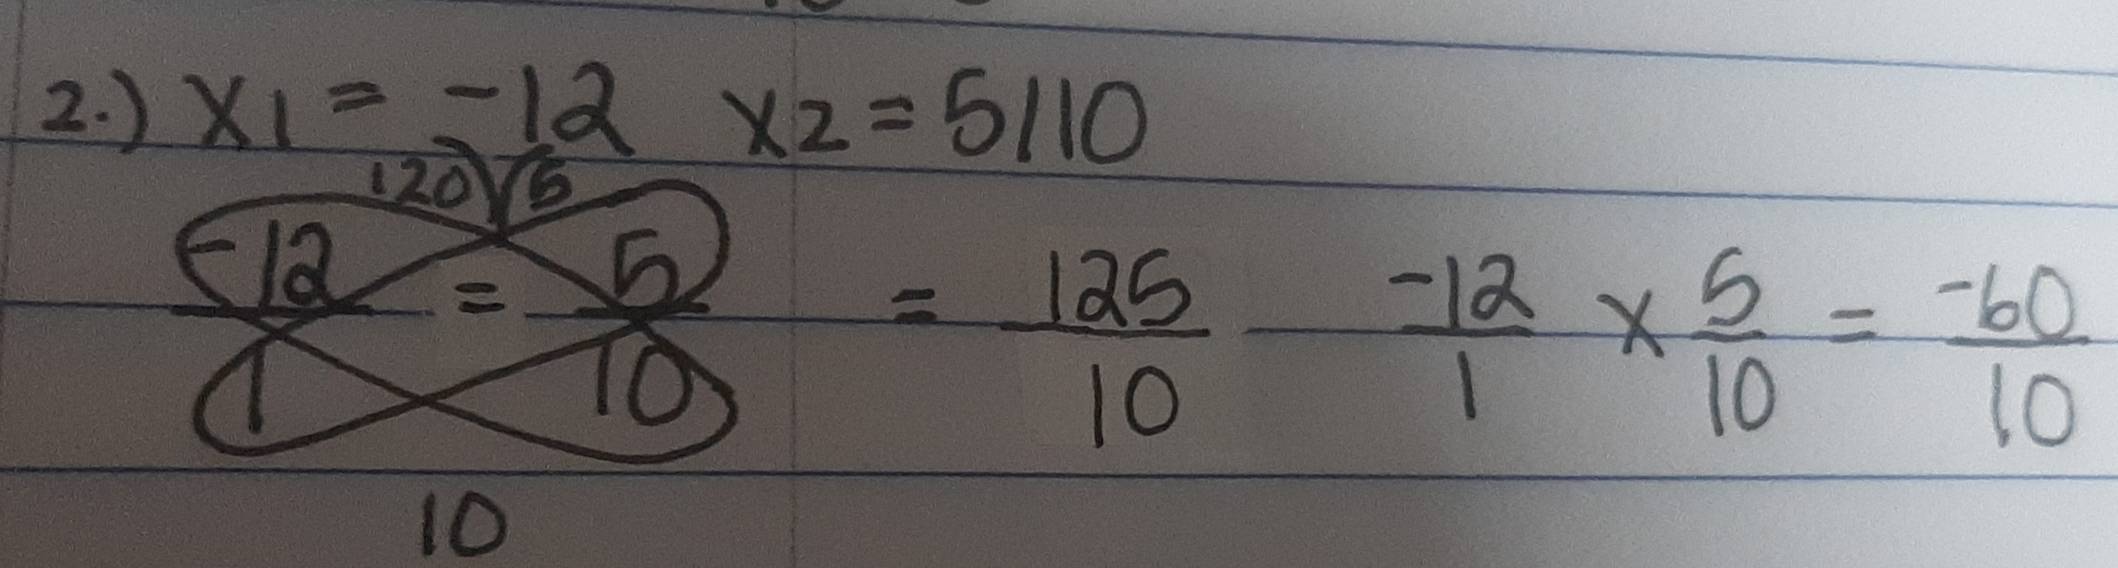 2.) x1 = -12 x2 = 5/10
120 5
-12/1 = 5/10 = 125/10 -12/1 x 5/10 = -60/10
10